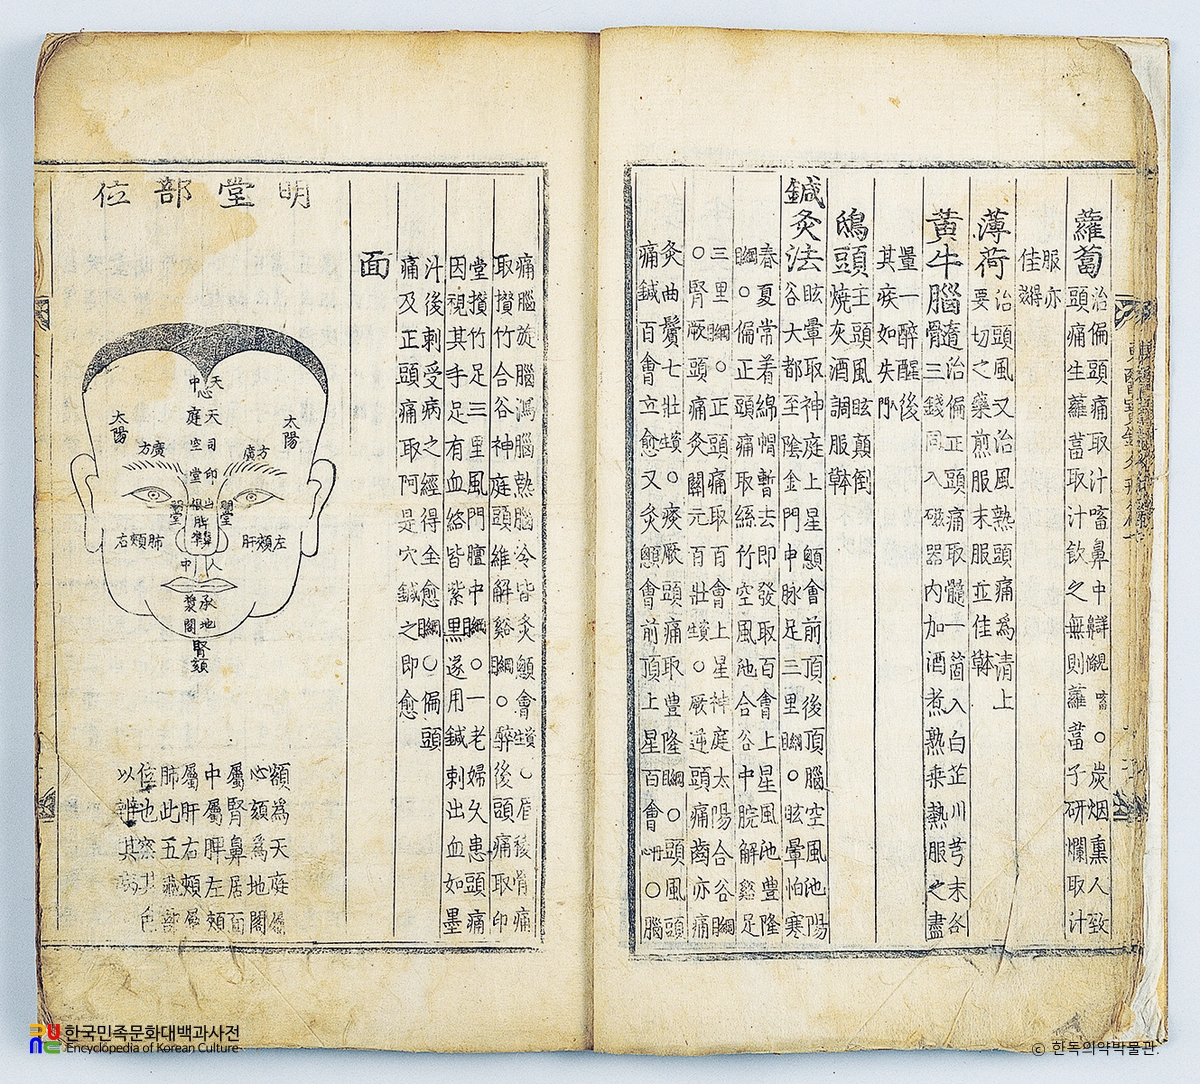 蘿蔔 治偏頭痛取汁畜鼻中 ○炭烟熏人致
頭痛生蘿蔔取汁飮之無則蘿蔔子研爛取汁
服亦
佳 得效
薄荷 治頭風又治風熱頭痛為清上
要切之藥煎服末服並佳
黃牛腦髓 治偏正頭痛取髓一箇入白芷川芎末各
骨三錢同入磁器內加酒煮熟乘熱服之盡
量一醉醒後
其疾如失
鴟頭 主頭風眩顚倒
燒灰酒調服
鍼灸法 眩暈取神庭上星顖會前頂後頂腦空風池陽
谷大都至陰金門申脉足三里綱○眩暈怕寒
春夏常着綿帽暫去即發取百會上星風池豊隆
綱○偏正頭痛取絲竹空風池合谷中脘解谿足
三里綱○正頭痛取百會上星神庭太陽合谷綱
○腎厥頭痛灸關元百壯資生○厥逆頭痛齒亦痛
灸曲鬢七壯資生○痰厥頭痛取豊隆綱○頭風頭
痛鍼百會立愈又灸顖會前頂上星百會○腦
痛腦旋腦瀉腦熱腦冷皆灸顖會資生○眉稜骨痛
取攢竹合谷神庭頭維解谿綱○醉後頭痛取印
堂攢竹足三里風門膻中綱○一老婦久患頭痛
因視其手足有血絡皆紫黑遂用鍼刺出血如墨
汁後刺受病之經得全愈綱○偏頭
痛及正頭痛取阿是穴鍼之即愈
面
明堂部位
天中
天庭
司空
印堂
山根
太陽
太陽
方廣
方廣
明堂
明堂
脾
準
左頰肝
肺頰右
人中
承漿
地閣
腎頦
額為天庭屬
心頦為地閣
屬腎鼻居面
中屬脾左頰
屬肝右頰屬
肺此五藏部
位也察其色
以辨其病
한국민족문화대백과사전
Encyclopedia of Korean Culture
© 한독의약박물관.